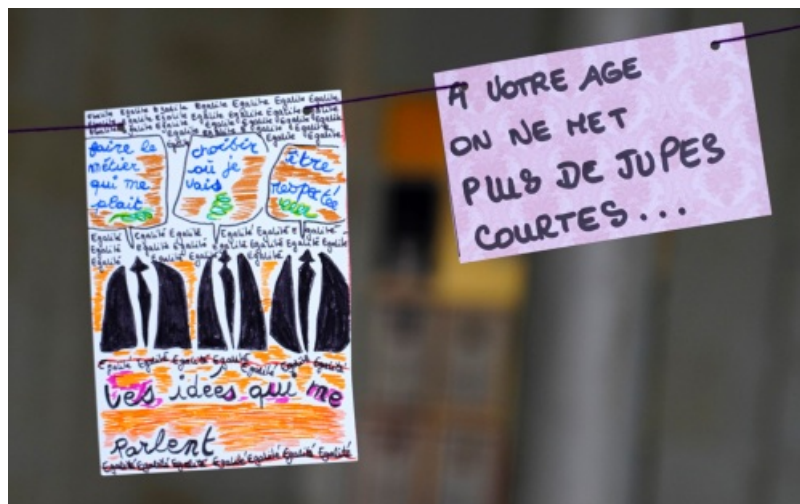 Egalité Egalité Egalité Egalité Egalité
faire le
métier
qui me
plait
choisir
où je
vais
être
respectée
Egalité Egalité Egalité Egalité
Egalité Egalité Egalité Egalité
Egalité Egalité Egalité
Egalité Egalité Egalité Egalité
Egalité Egalité Egalité
Des idées qui me
parlent
Egalité Egalité Egalité Egalité Egalité Egalité Egalité
A VOTRE AGE
ON NE MET
PLUS DE JUPES
COURTES...